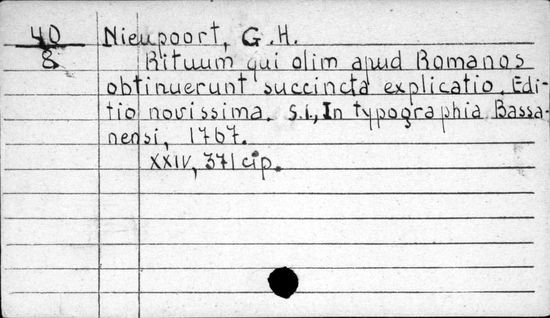 40 Nieupoort, G.H.
8 Rituum qui olim apud Romanos
obtinuerunt succincta explicatio. Edi-
tio novissima. S.i., In typographia Bassa-
nensi, 1767.
XXIV, 371 cip.